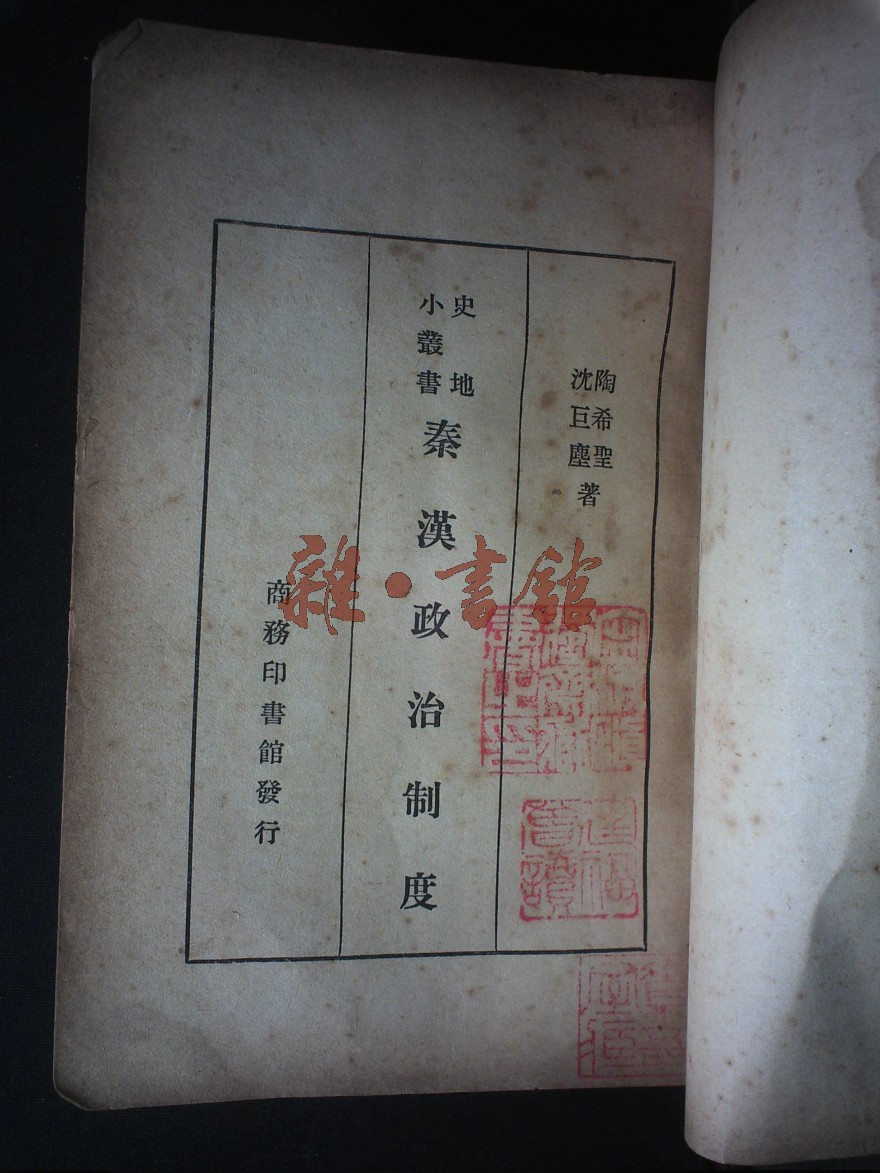 陶希聖
沈巨塵著
史地
小叢書
秦漢政治制度
商務印書館發行
雜·書館